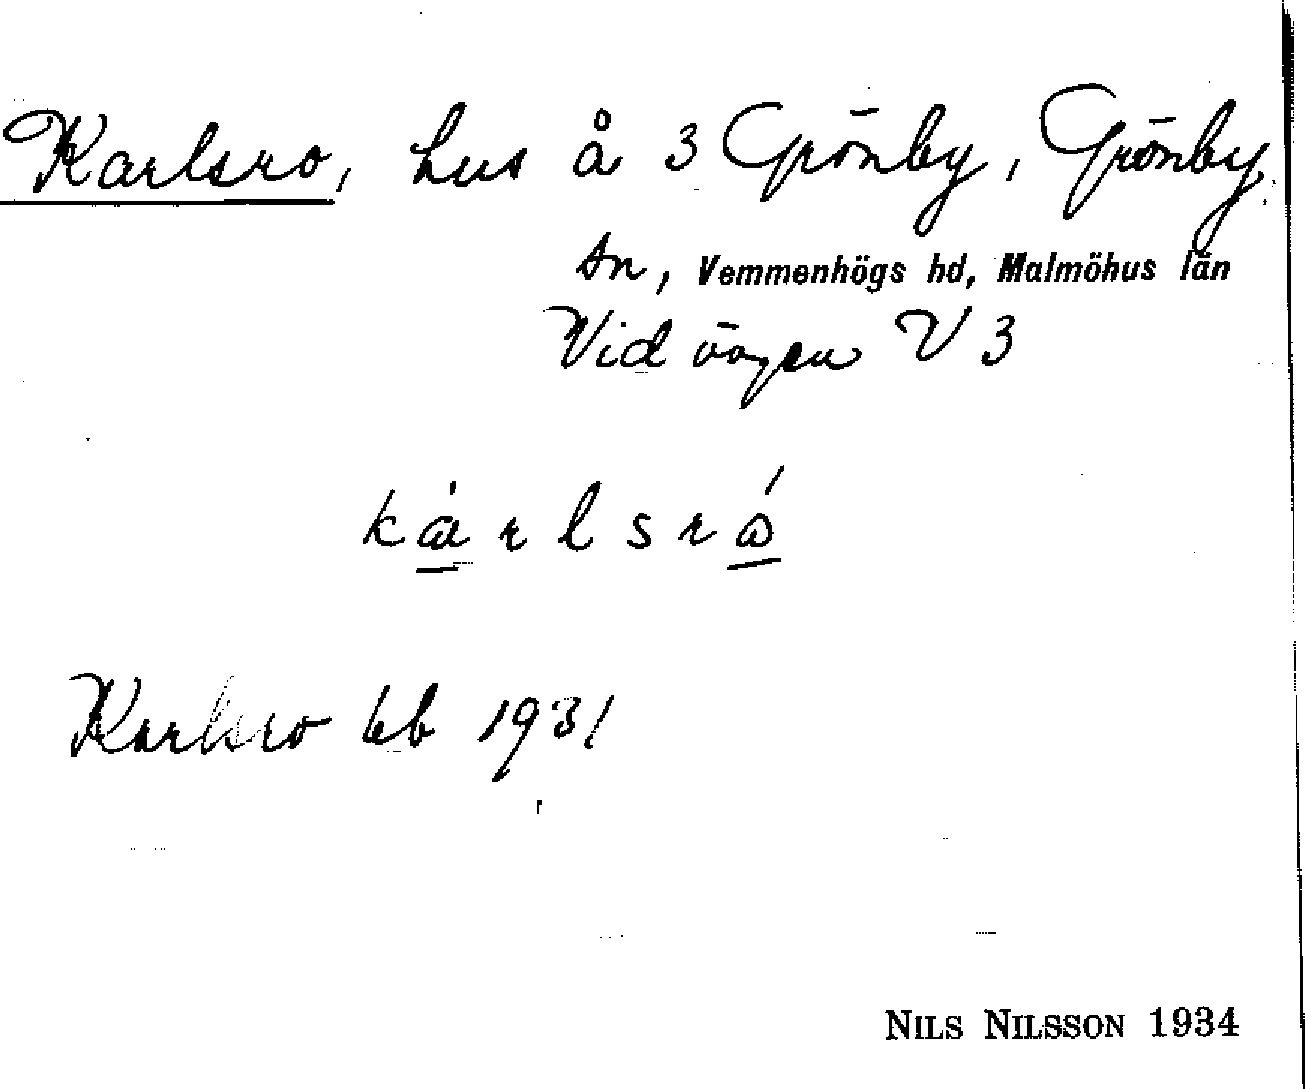 Karlsro, hus å 3 Grönby, Grönby
sn, Vemmenhögs hd, Malmöhus län
Vid vägen V 3
karlsró
Karlsro kb 1931
NILS NILSSON 1934